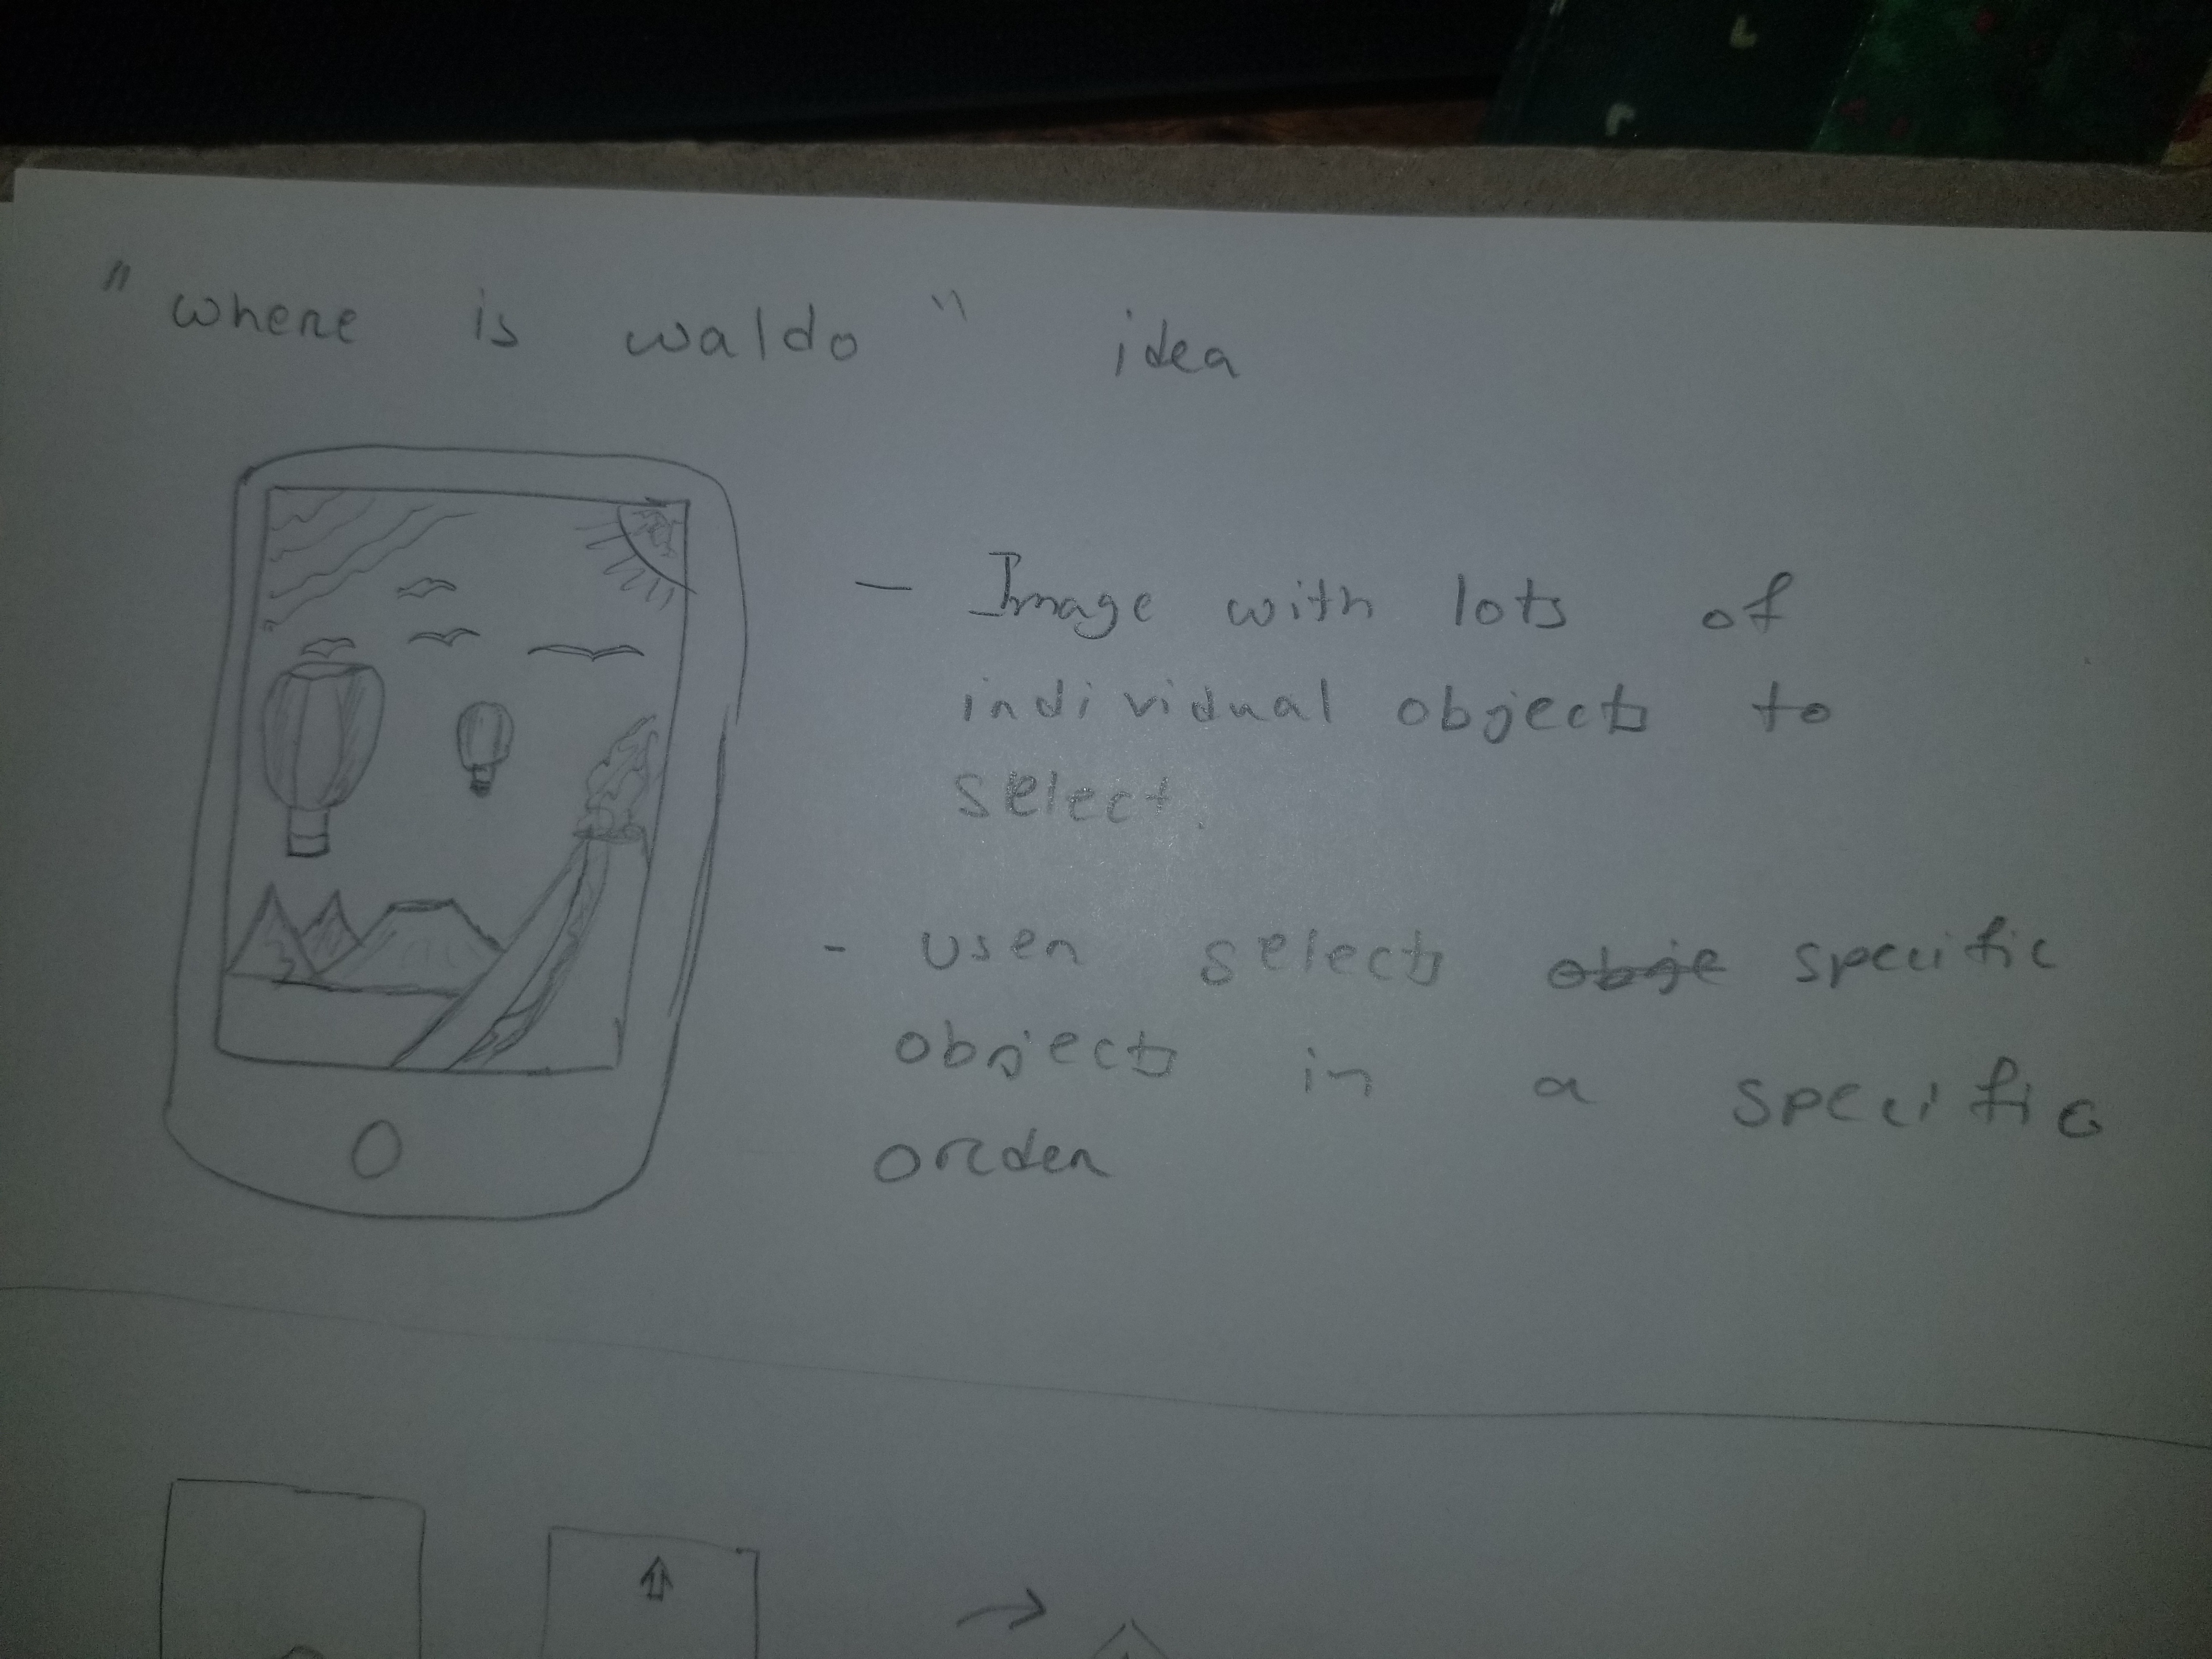 "where is waldo" idea
- Image with lots of
individual objects to
select.
- user selects obje specific
objects in a specific
order